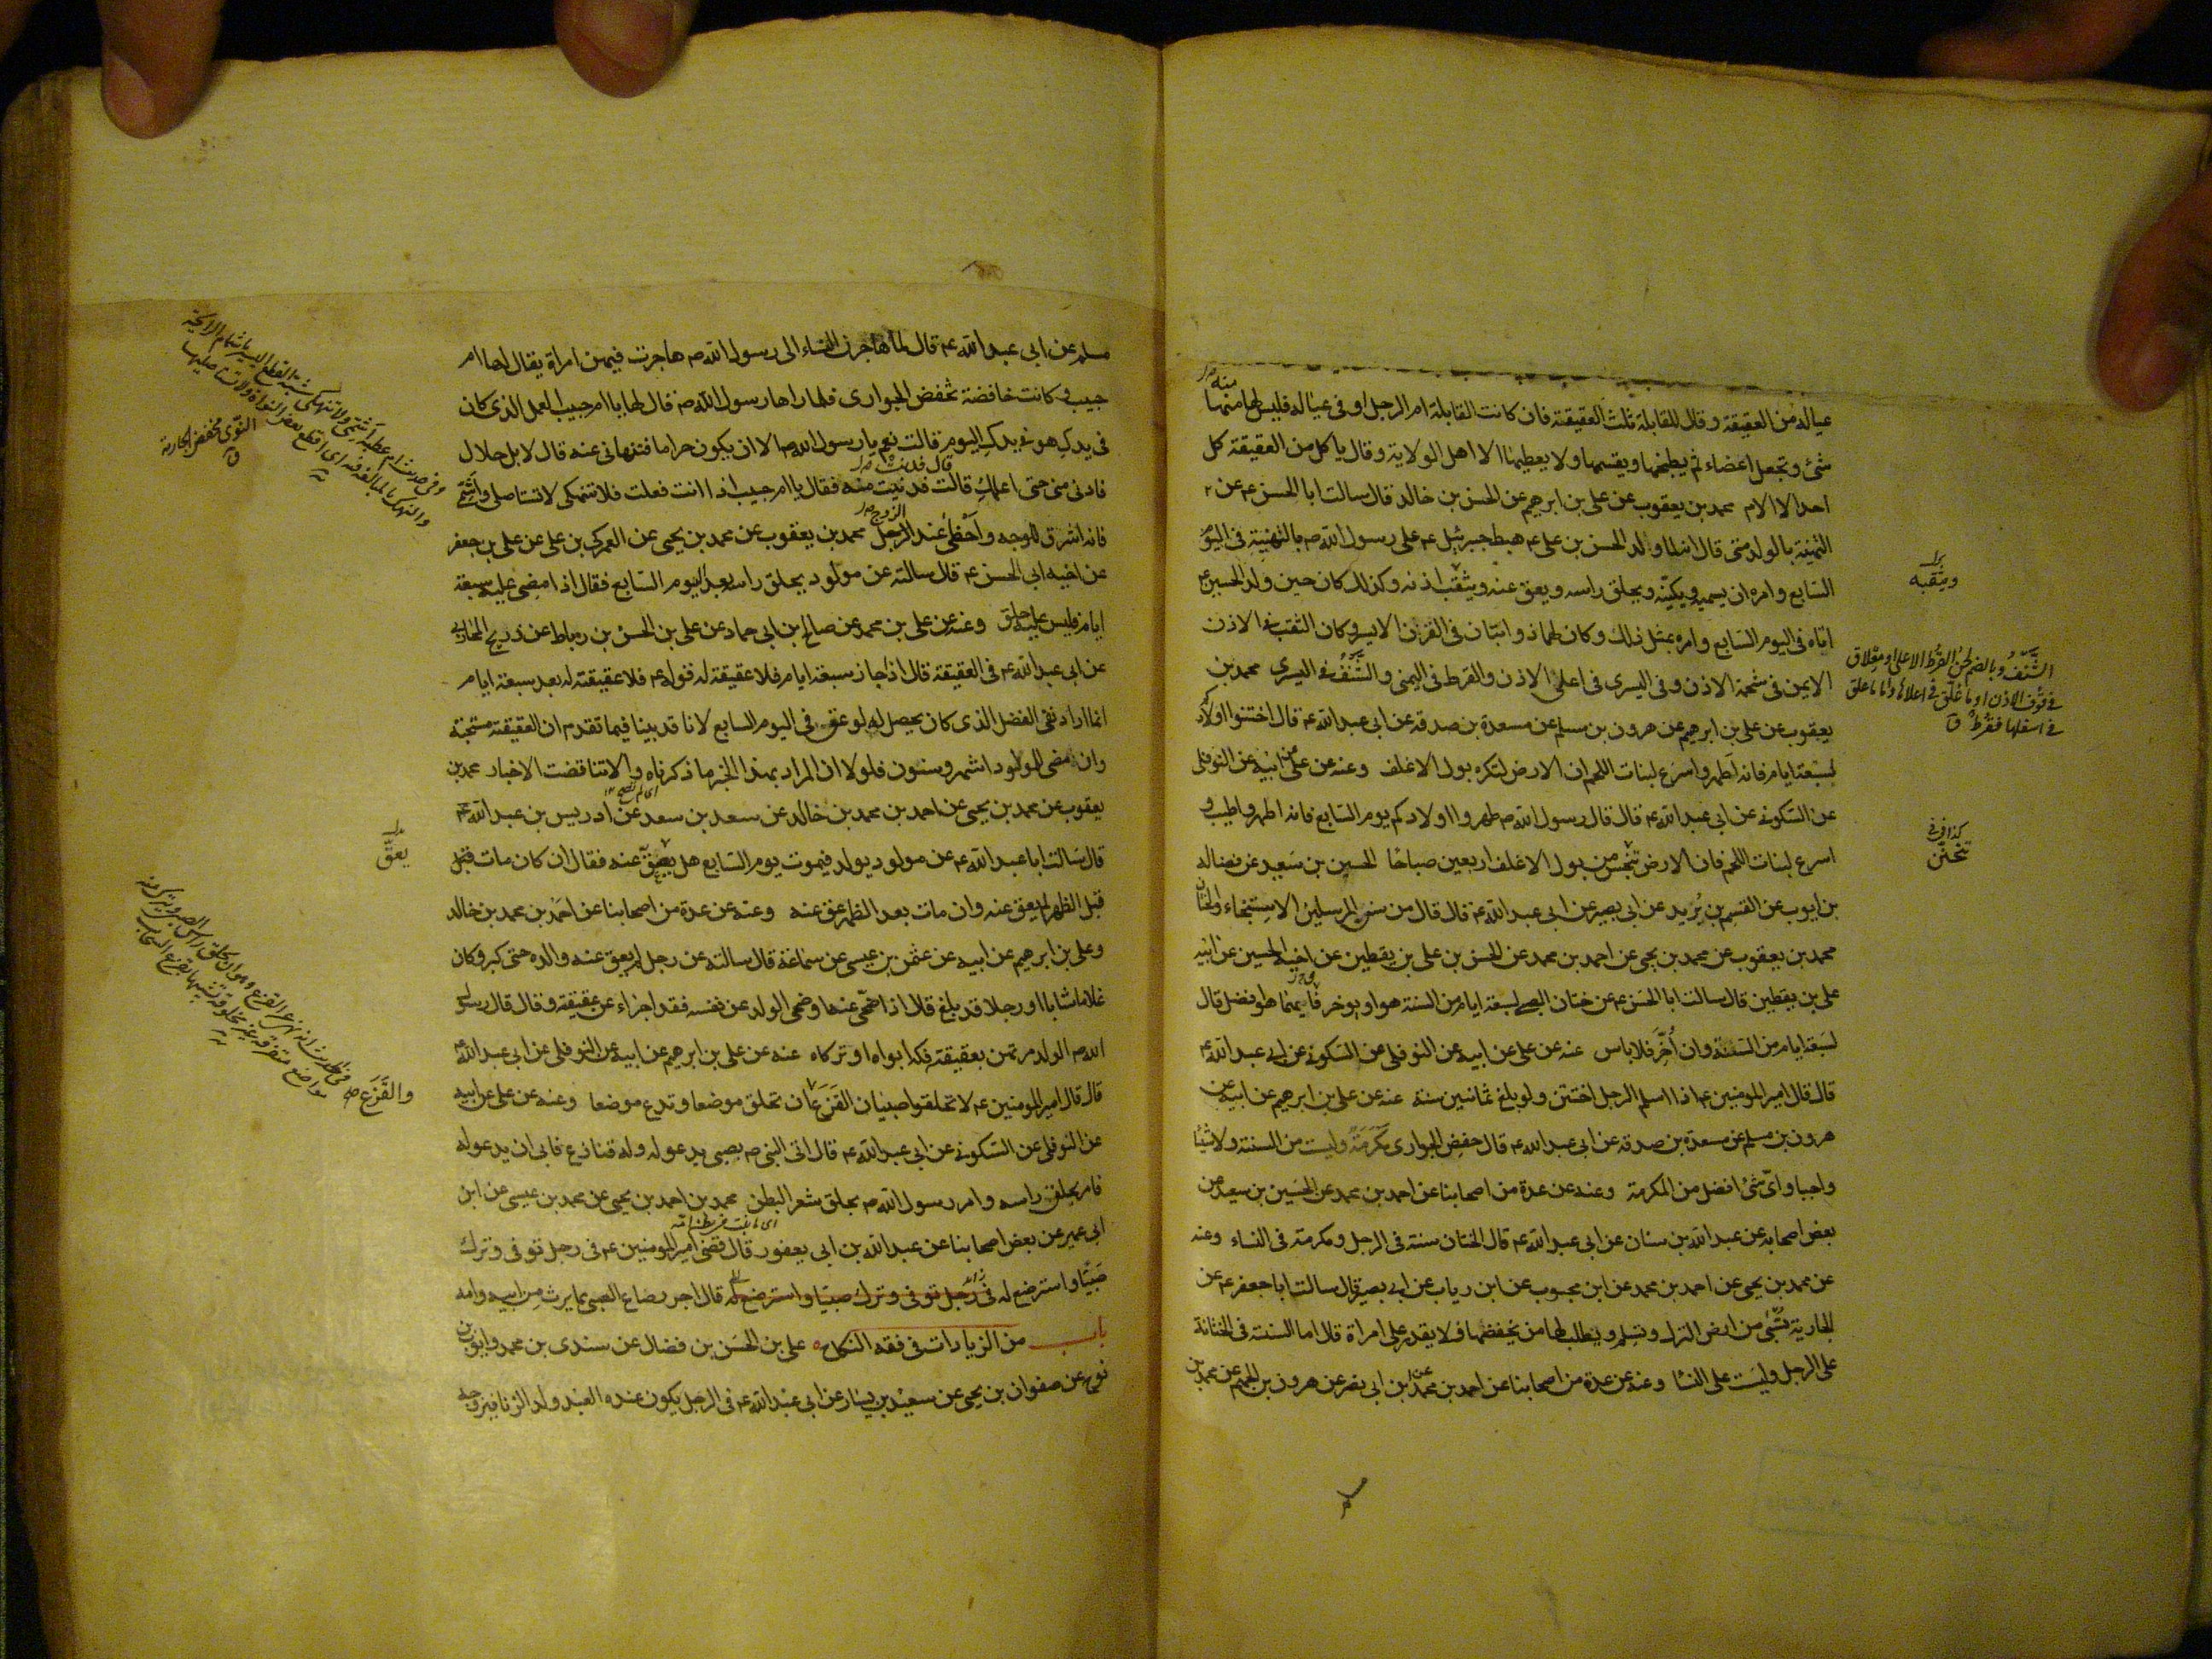 عياله من العقيقة وقال للقابلة ثلث العقيقة فان كانت القابلة ام الرجل او فى عياله فليس لها منها
شئ وتجعل اعضاء ثم يطبخها ويقسمها ولا يعطيها الا اهل الولاية وقال ياكل من العقيقة كل
احد الا الام محمد بن يعقوب عن على بن ابرهيم عن الحسن بن خالد قال سالت ابا الحسن ع عن
التهنية بالولد متى قال انه لما ولد الحسن بن على ع هبط جبرئيل ع على رسول الله ص بالتهنية فى اليوم
السابع وامره ان يسميه ويكنيه ويحلق راسه ويعق عنه ويثقب اذنه وكذلك كان حين ولد الحسين ع
اتاه فى اليوم السابع وامره بمثل ذلك وكان لهما ذوابتان فى القرن الايسر وكان الثقب فى الاذن
الايمن فى شحمة الاذن وفى اليسرى فى اعلى الاذن والقرط فى اليمنى والشنف فى اليسرى محمد بن
يعقوب عن على بن ابرهيم عن هرون بن مسلم عن مسعدة بن صدقة عن ابى عبد الله ع قال اختنوا اولادكم
لسبعة ايام فانه اطهر واسرع لنبات اللحم ان الارض لتكره بول الاغلف وعنه عن على عن ابيه عن النوفلى
عن السكونى عن ابى عبد الله ع قال قال رسول الله ص طهروا اولادكم يوم السابع فانه اطهر واطيب و
اسرع لنبات اللحم فان الارض تنجس من بول الاغلف اربعين صباحا الحسين بن سعيد عن فضالة
بن ايوب عن القسم بن بريد عن ابى بصير عن ابى عبد الله ع قال قال من سنن المرسلين الاستنجاء والختان
محمد بن يعقوب عن محمد بن يحيى عن احمد بن محمد عن الحسن بن على بن يقطين عن اخيه الحسين عن ابيه
على بن يقطين قال سالت ابا الحسن ع عن ختان الصبى لسبعة ايام من السنة هو او يوخر فايهما هو افضل قال
لسبعة ايام من السنة وان اخر فلا باس عنه عن على عن ابيه عن النوفلى عن السكونى عن ابى عبد الله ع
قال قال امير المومنين ع اذا اسلم الرجل اختتن ولو بلغ ثمانين سنة عنه عن على بن ابرهيم عن ابيه عن
هرون بن مسلم عن مسعدة بن صدقة عن ابى عبد الله ع قال خفض الجوارى مكرمة وليست من السنة ولا شيئا
واجبا واى شئ افضل من المكرمة وعنه عن عدة من اصحابنا عن احمد بن محمد عن الحسين بن سعيد عن
بعض اصحابه عن عبد الله بن سنان عن ابى عبد الله ع قال الختان سنة فى الرجل ومكرمة فى النساء وعنه
عن محمد بن يحيى عن احمد بن محمد عن ابن محبوب عن ابن رياب عن ابى بصير قال سالت ابا جعفر ع عن
الجارية تسبى من ارض الترك وتسلم ويطلب لها من يخفضها فلا يقدر على امراة قال اما السنة فى الختانة
على الرجل وليست على النسا وعنه عن عدة من اصحابنا عن احمد بن محمد عن ابن ابى نصر عن هرون بن الجهم عن محمد بن
ويثقبه
الشنف وبالضم لحن القرط الاعلى او معلاق
فى قوف الاذن او ما علق فى اعلاها واما ما علق
فى اسفلها فقرط ق
مسلم عن ابى عبد الله ع قال لما هاجرن النساء الى رسول الله ص هاجرت فيهن امراة يقال لها ام
حبيب وكانت خافضة تخفض الجوارى فلما راها رسول الله ص قال لها يا ام حبيب العمل الذى كان
فى يدك هو فى يدك اليوم قالت نعم يا رسول الله ص الا ان يكون حراما فتنهانى عنه قال لا بل حلال
فادنى منى حتى اعلمك قالت فدنيت منه فقال يا ام حبيب اذا انت فعلت فلا تنهكى لا تستاصلى واشمى
فانه اشرق للوجه واحظى عند الرجل محمد بن يعقوب عن محمد بن يحيى عن العمركى بن على عن على بن جعفر
عن اخيه ابى الحسن ع قال سالته عن مولود يحلق راسه بعد اليوم السابع فقال اذا مضى عليه سبعة
ايام فليس عليه حلق وعنه عن على بن محمد عن صالح بن ابى حماد عن على بن الحسن بن رباط عن ذريح المحاربى
عن ابى عبد الله ع فى العقيقة قال اذا جاز سبعة ايام فلا عقيقة له قوله ع فلا عقيقة له بعد سبعة ايام
انما اراد نفى الفضل الذى كان يحصل له لو عق فى اليوم السابع لانا قد بينا فيما تقدم ان العقيقة مستحبة
وان مضى للمولود اشهر وسنون فلولا ان المراد بهذا الخبر ما ذكرناه والا تناقضت الاخبار محمد بن
يعقوب عن محمد بن يحيى عن احمد بن محمد بن خالد عن سعد بن سعد عن ادريس بن عبد الله
قال سالت ابا عبد الله ع عن مولود يولد فيموت يوم السابع هل يعق عنه فقال ان كان مات قبل
قبل الظهر لم يعق عنه وان مات بعد الظهر عق عنه وعنه عن عدة من اصحابنا عن احمد بن محمد بن خالد
وعلى بن ابرهيم عن ابيه عن عثمن بن عيسى عن سماعة قال سالته عن رجل لم يعق عنه والده حتى كبر وكان
غلاما شابا او رجلا قد بلغ قال اذا ضحى عنه او ضحى الولد عن نفسه فقد اجزاء عن عقيقته وقال قال رسول
الله ص الولد مرتهن بعقيقته فكه ابواه او تركاه عنه عن على بن ابرهيم عن ابيه عن النوفلى عن ابى عبد الله ع
قال قال امير المومنين ع لا تحلقوا صبيان القزع ان تحلق موضعا وتدع موضعا وعنه عن على عن ابيه
عن النوفلى عن السكونى عن ابى عبد الله ع قال اتى النبى ص بصبى يدعو له وله قنازع فابى ان يدعو له
فامر بحلق راسه وامر رسول الله ص بحلق شعر البطن محمد بن احمد بن يحيى عن محمد بن عيسى عن ابن
ابى عمير عن بعض اصحابنا عن عبد الله بن ابى يعفور قال قضى امير المومنين ع فى رجل توفى وترك
صبيا واسترضع له فى رجل توفى وترك صبيا واسترضع له قال اجر رضاع الصبى مما يرث من ابيه وامه
باب من الزيادات فى فقه النكاح على بن الحسن بن فضال عن سندى بن محمد وايوب بن
نوح عن صفوان بن يحيى عن سعيد بن يسار عن ابى عبد الله ع فى الرجل يكون عنده العبد ولد الزنا فيزوجه
يعق
والقزع